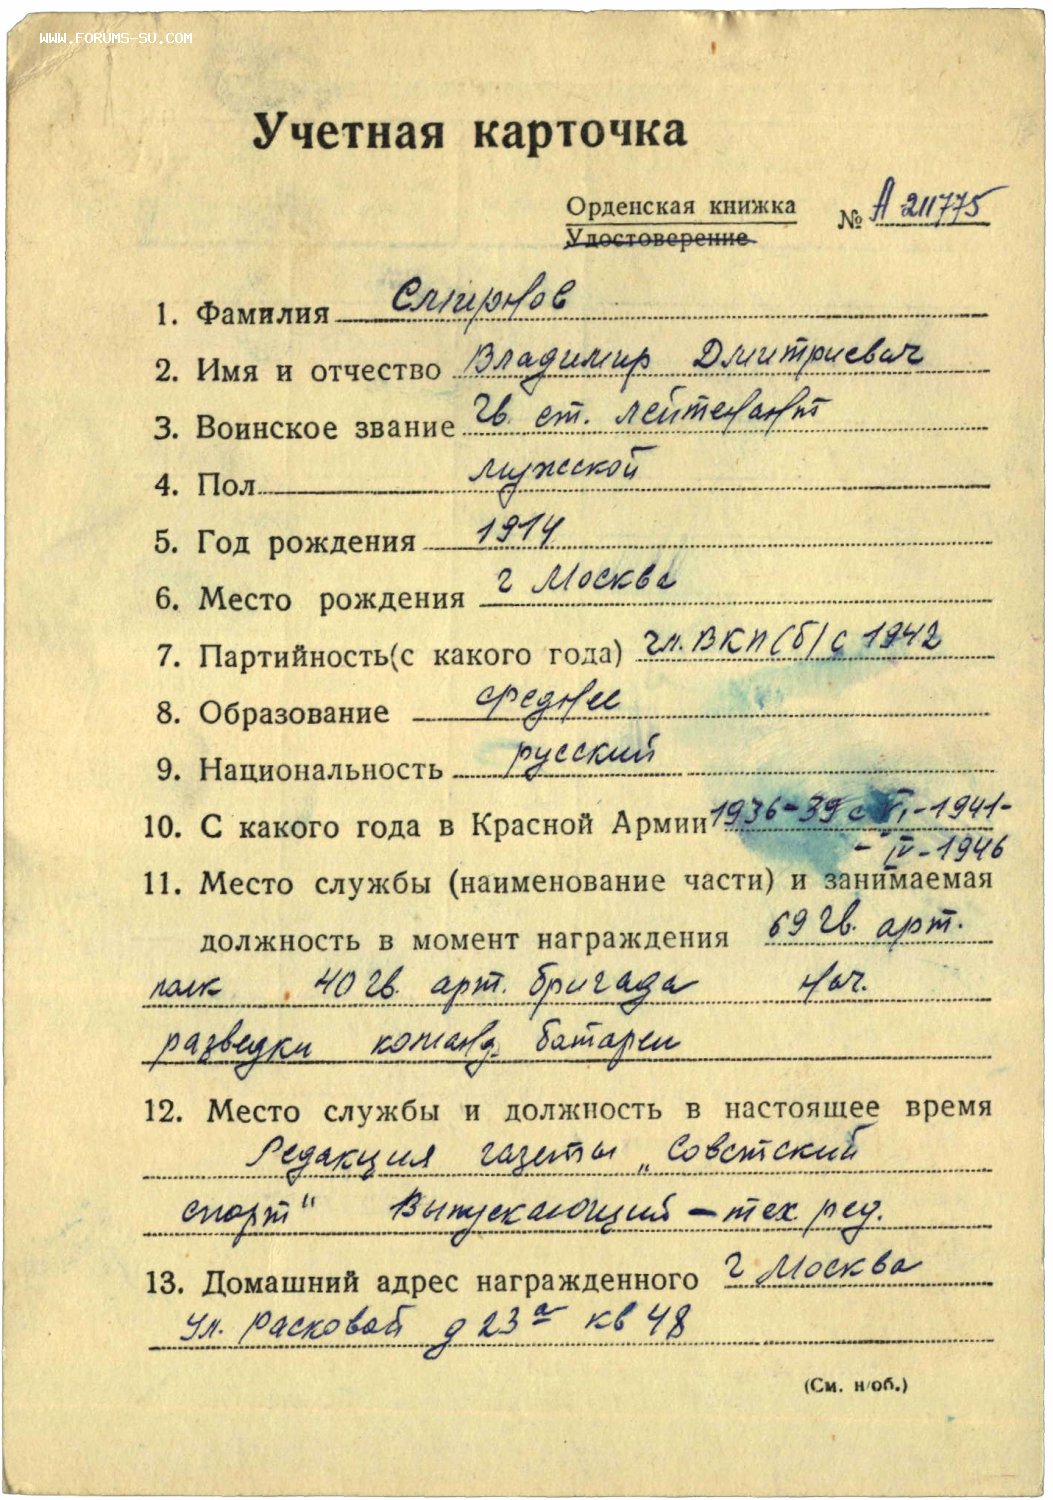 WWW.FORUMS-SU.COM
Учетная карточка
Орденская книжка № А 211775
Удостоверение
1. Фамилия Смирнов
2. Имя и отчество Владимир Дмитриевич
3. Воинское звание Гв. ст. лейтенант
4. Пол мужской
5. Год рождения 1914
6. Место рождения г Москва
7. Партийность(с какого года) чл. ВКП(б) с 1942
8. Образование среднее
9. Национальность русский
10. С какого года в Красной Армии 1936-39 с VI-1941-
- IV-1946
11. Место службы (наименование части) и занимаемая
должность в момент награждения 69 гв. арт.
полк 40 гв. арт. бригада нач.
разведки команд. батареи
12. Место службы и должность в настоящее время
Редакция газеты „Советский
спорт" Выпускающий - тех. ред.
13. Домашний адрес награжденного г Москва
ул. Расковой д 23а кв 48
(См. н/об.)